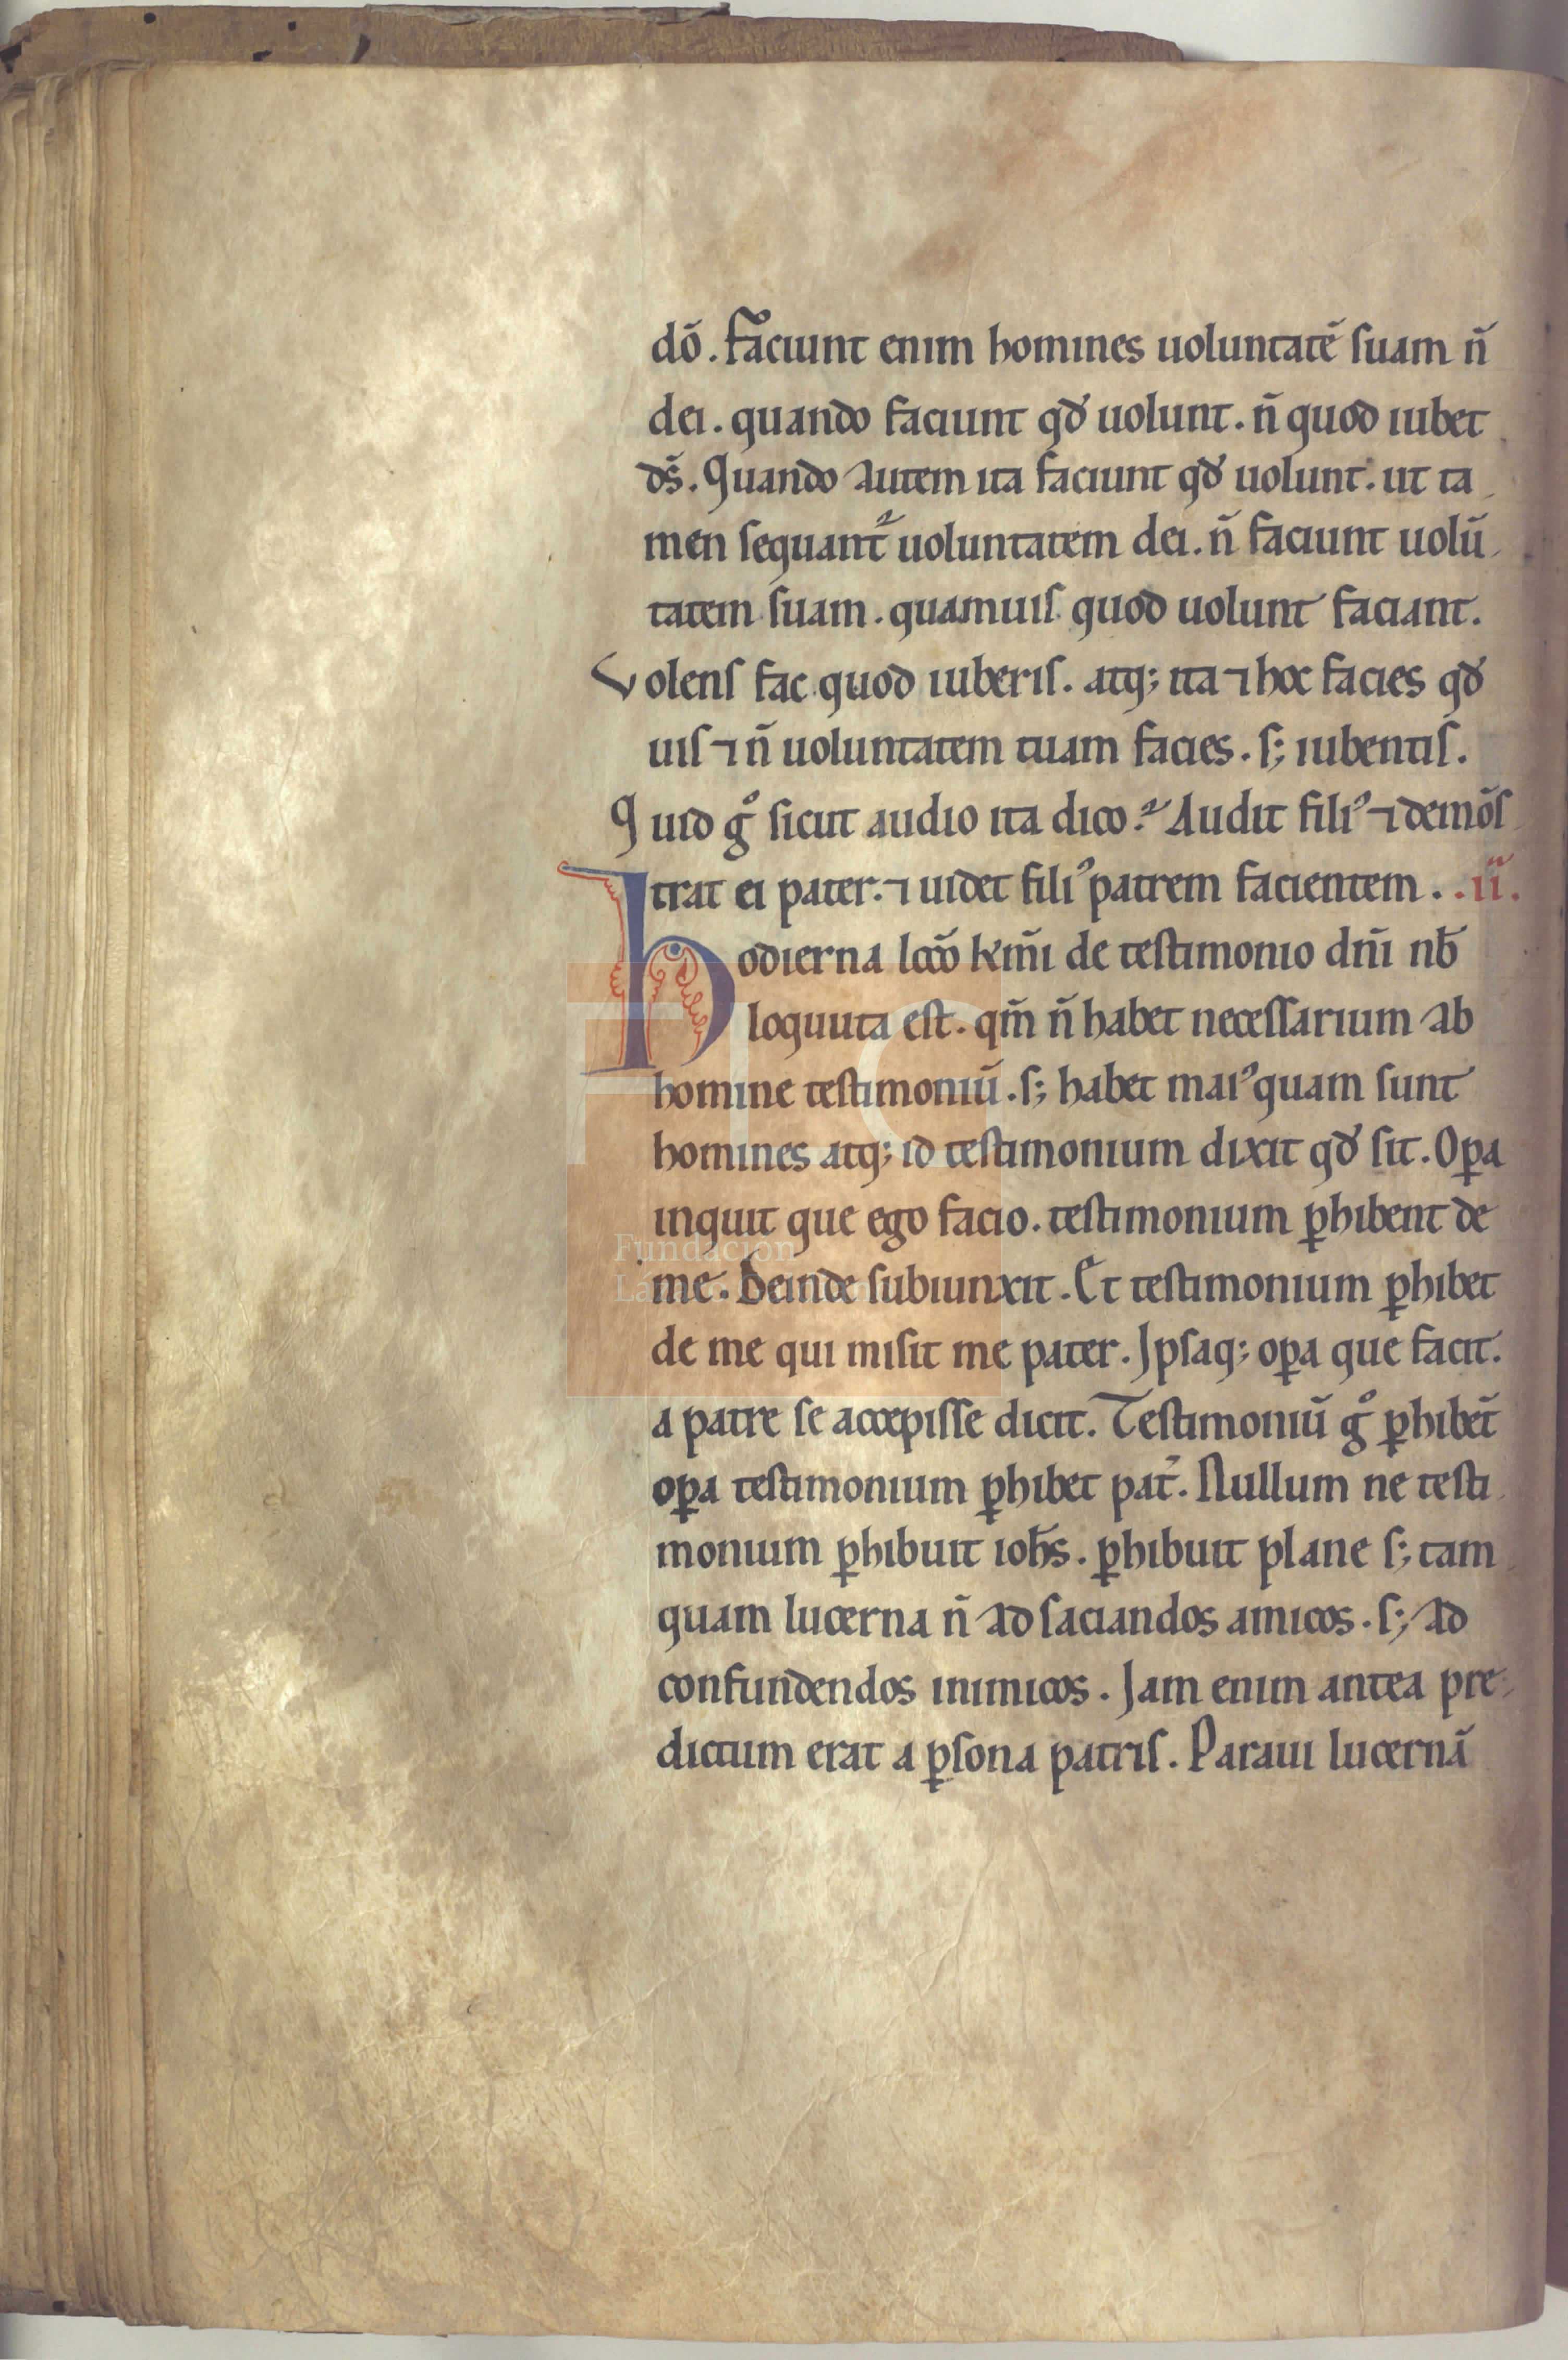 dō. Faciunt enim homines uoluntatē suam n̄
dei. quando faciunt qđ uolunt. n̄ quod iubet
ds̄. Quando autem ita faciunt qđ uolunt. ut ta
men sequant᷑ uoluntatem dei. n̄ faciunt uolū
tatem suam. quamuis quod uolunt faciant.
Volens fac quod iuberis. atq; ita ⁊ hoc facies qđ
uis ⁊ n̄ uoluntatem tuam facies. s; iubentis.
Quid gͦ sicut audio ita dico? Audit filiꝰ ⁊ demōs
trat ei pater. ⁊ uidet filiꝰ patrem facientem. .ii.
Hodierna lcc̄o km̄i de testimonio dn̄i nb̄
loquuta est. qm̄ n̄ habet necessarium ab
homine testimoniū. s; habet maiꝰ quam sunt
homines atq; id testimonium dixit qđ sit. Oꝑa
inquit que ego facio. testimonium ꝑhibent de
me. Deinde subiunxit. Et testimonium ꝑhibet
de me qui misit me pater. Ipsaq; oꝑa que facit.
a patre se accepisse dicit. Testimoniū gͦ ꝑhibēt
oꝑa testimonium ꝑhibet pat̄. Nullum ne testi
monium ꝑhibuit ioh̄s. ꝑhibuit plane s; tam
quam lucerna n̄ ad saciandos amicos. s; ad
confundendos inimicos. Jam enim antea pre
dictum erat a ꝑsona patris. Paraui lucernā
Fundación